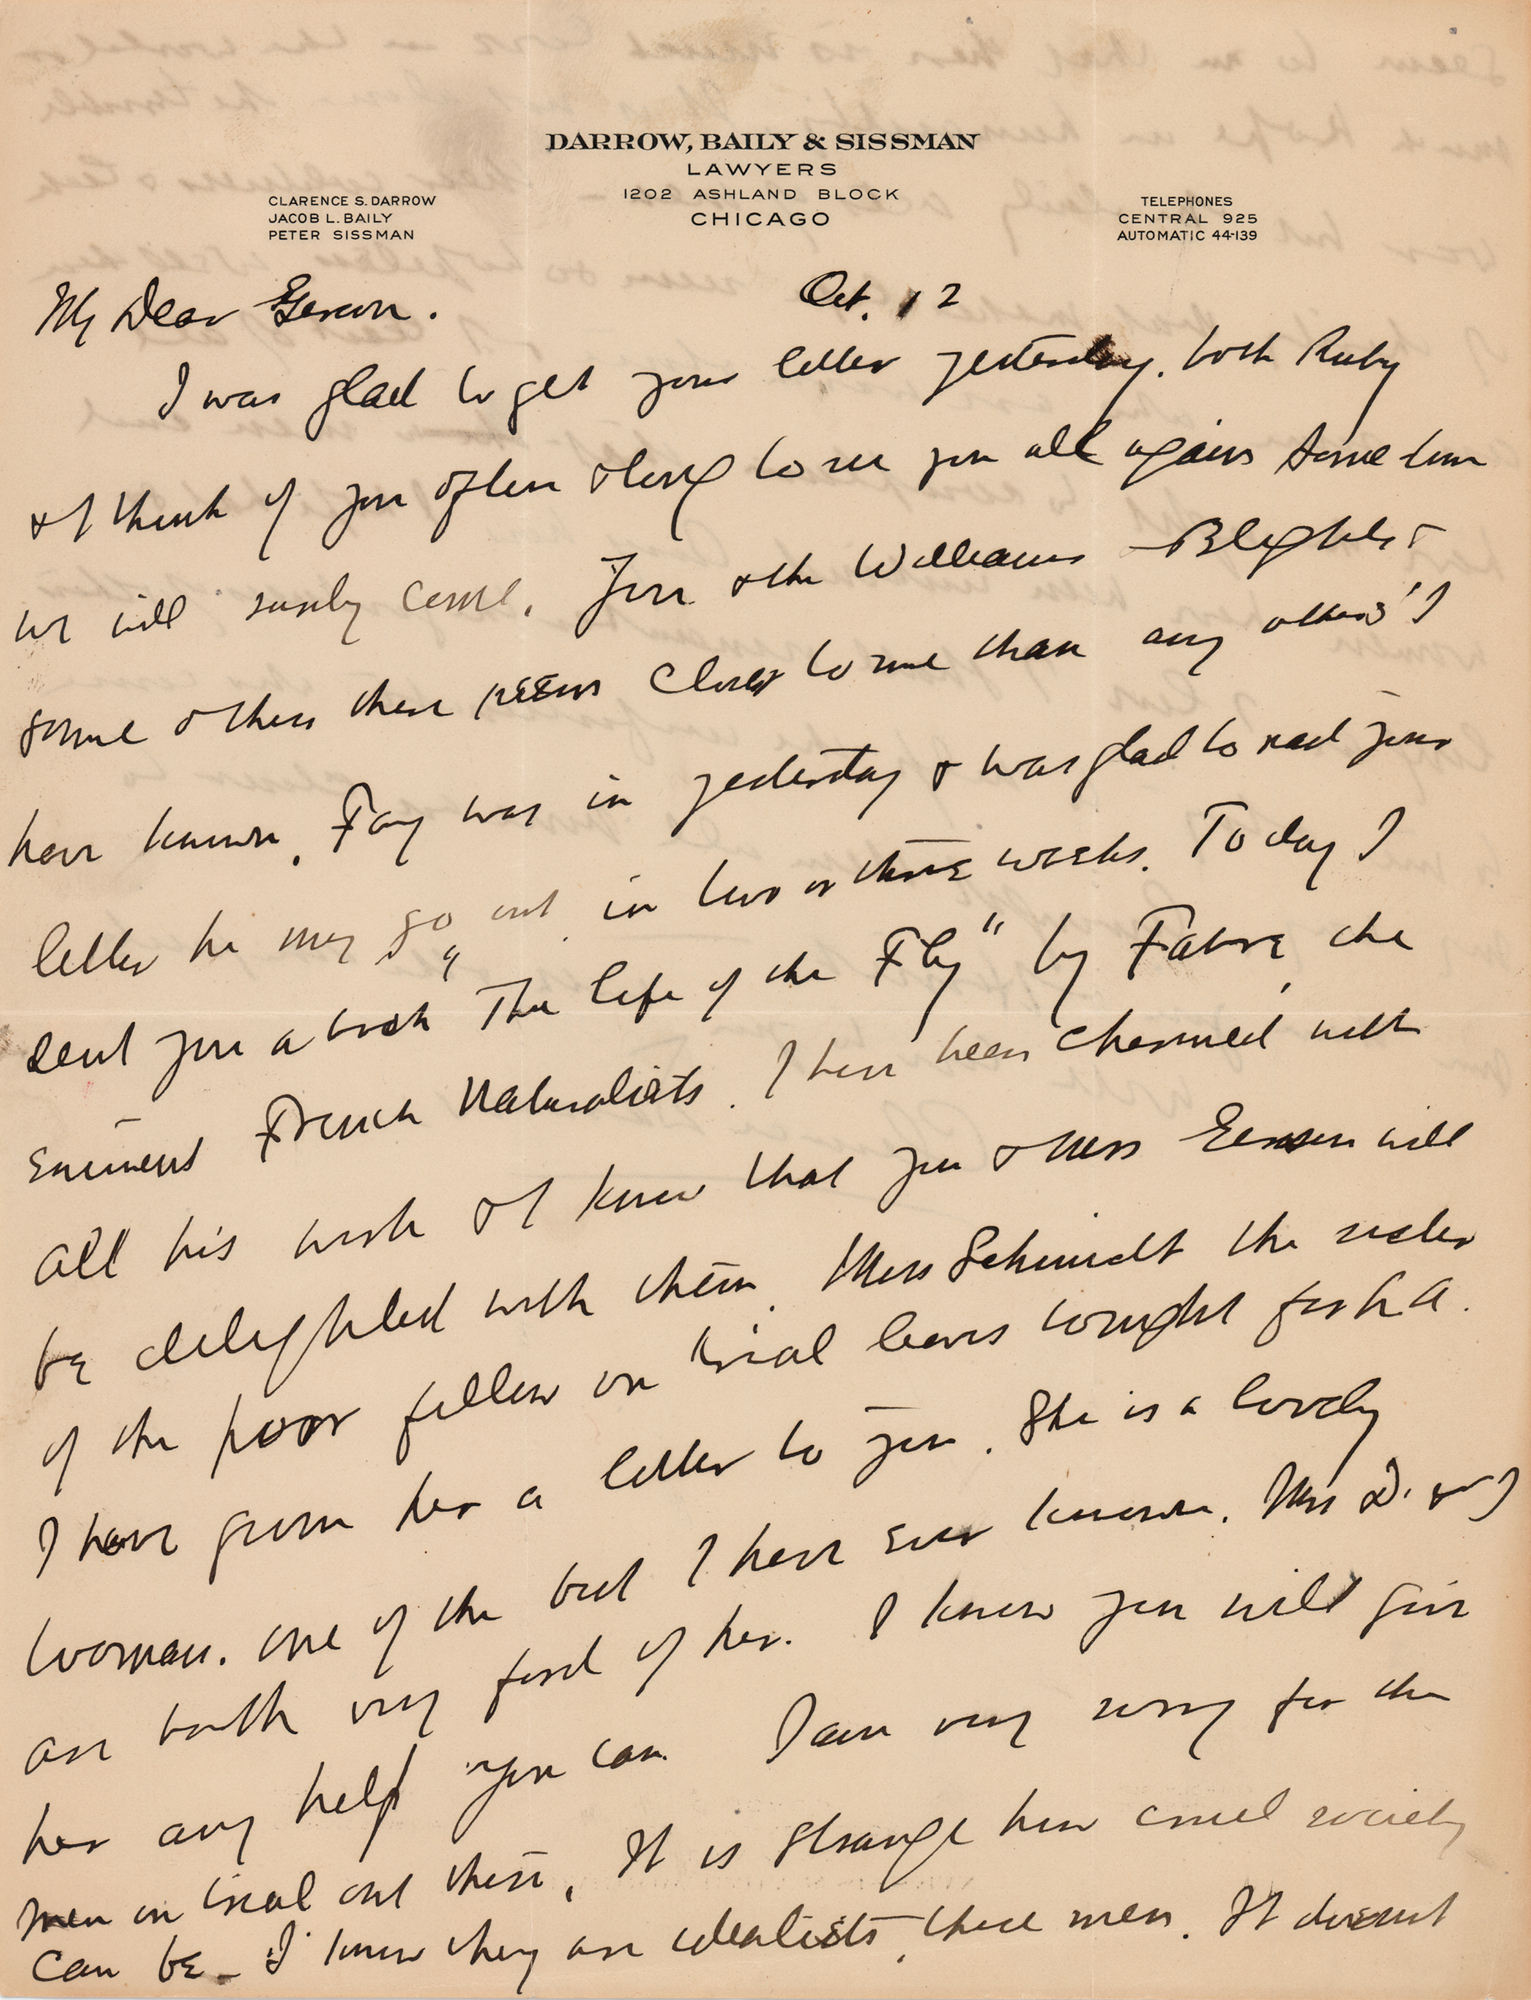 DARROW, BAILY & SISSMAN
LAWYERS
1202 ASHLAND BLOCK
CHICAGO
CLARENCE S. DARROW
JACOB L. BAILY
PETER SISSMAN
TELEPHONES
CENTRAL 925
AUTOMATIC 44-139
Oct. 12
My Dear Gerson.
I was glad to get your letter yesterday. both Ruby
& I think of you often & long to see you all again Some time
we will surely come. You & the Williams
some others there seem closer to me than any others I
have known. Fay was in yesterday & was glad to read your
letter he may go out in two or three weeks. To day I
sent you a book "The life of the Fly" by Fabre, the
eminent French Naturalists. I have been charmed with
all his work & I know that you & Mrs Gerson will
be delighted with them. Miss Schmidt the sister
of the poor fellow on trial leaves tonight for L A.
I have given her a letter to you. She is a lovely
woman. one of the best I have ever known. Mrs D. & I
are both very fond of her. I know you will give
her any help you can. I am very sorry for the
men on trial out there, It is strange how cruel society
can be_ I know they are idealists, these men. It doesnt